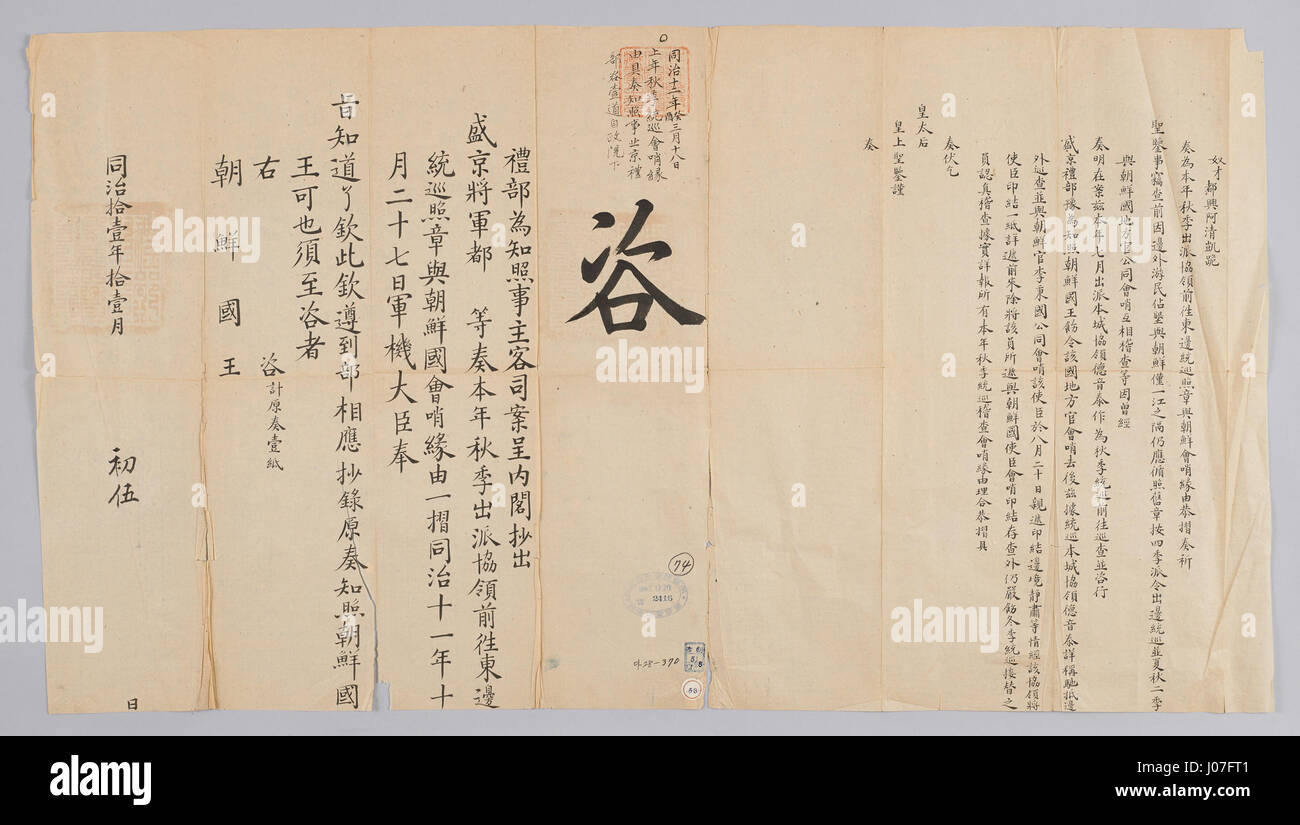 奴才都興阿清凱跪
奏為本年秋季出派協領前往東邊統巡照章與朝鮮會哨緣由恭摺奏祈
聖鑒事竊查前因邊外游民佔墾與朝鮮僅一江之隔仍應循照舊章按四季派令出邊統巡並夏秋二季
與朝鮮國地方官公同會哨互相稽查等因曾經
奏明在案茲本年七月出派本城協領德音泰作為秋季統巡前往巡查並咨行
盛京禮部豫為知照朝鮮國王飭令該國地方官會哨去後茲據統巡本城協領德音泰詳稱馳抵邊
外巡查並與朝鮮官李秉國公同會哨該使臣於八月二十日親遞印結邊境靜肅等情經該協領將
使臣印結一紙詳送前來除將該員所遞與朝鮮國使臣會哨印結存查外仍嚴飭冬季統巡接替之
員認真稽查據實詳報所有本年秋季統巡稽查會哨緣由理合恭摺具
奏伏乞
皇太后
皇上聖鑒謹
奏
同治十二年癸酉三月十八日
上年秋季統巡會哨緣
由具奏知照事北京禮
部咨壹道自政院下
咨
74
2416
오28-370
58
禮部為知照事主客司案呈內閣抄出
盛京將軍都 等奏本年秋季出派協領前往東邊
統巡照章與朝鮮國會哨緣由一摺同治十一年十
月二十七日軍機大臣奉
旨知道了欽此欽遵到部相應抄錄原奏知照朝鮮國
王可也須至咨者
右 咨 計原奏壹紙
朝鮮國王
同治拾壹年拾壹月 初伍 日
alamy
a
alamy
Image ID: J07FT1
www.alamy.com